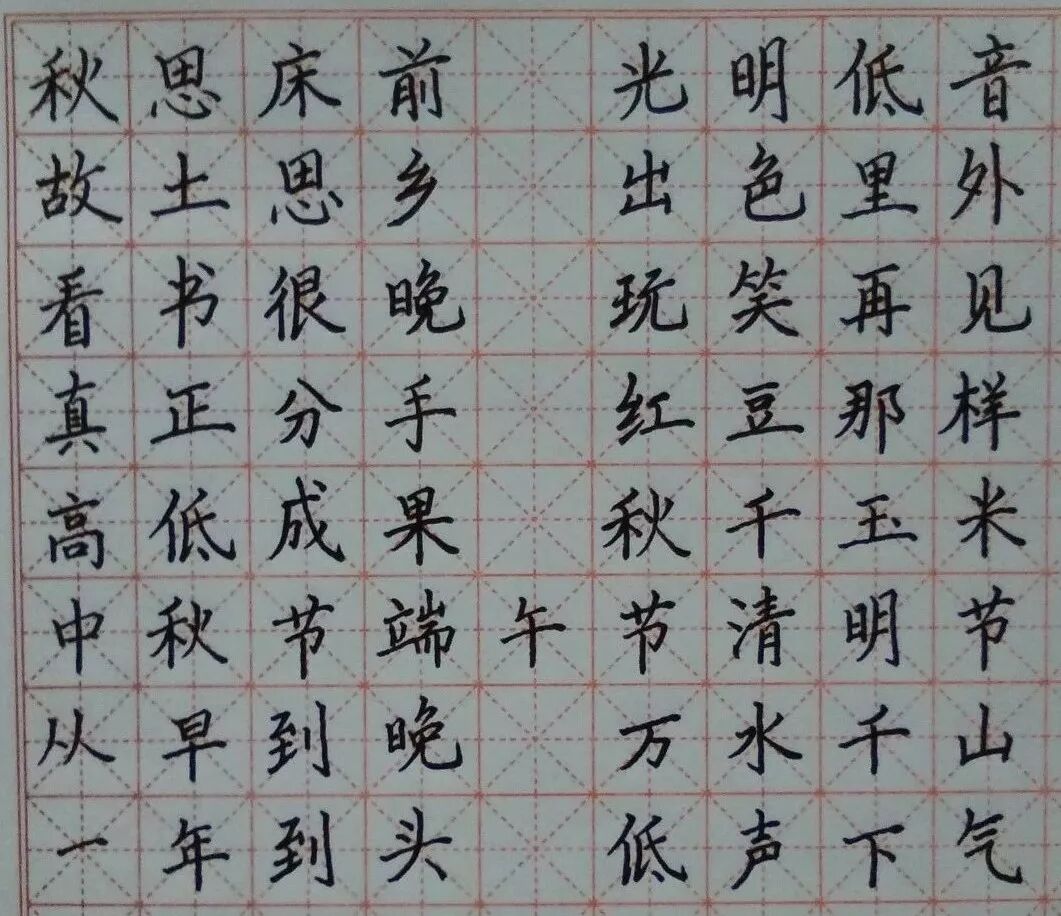 秋思床前 光明低音
故土思乡 出色里外
看书很晚 玩笑再见
真正分手 红豆那样
高低成果 秋千玉米
中秋节端午节清明节
从早到晚 万水千山
一年到头 低声下气